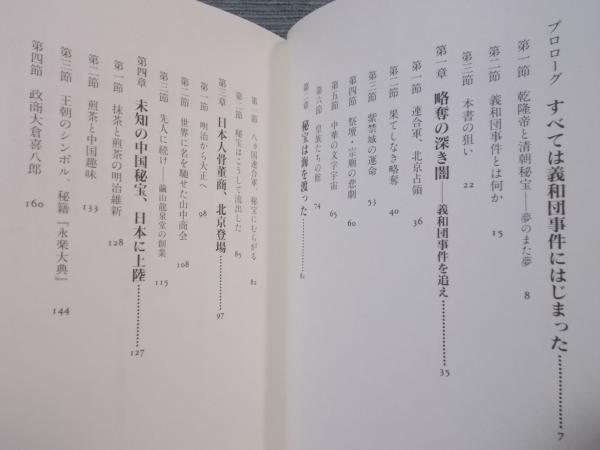 プロローグ すべては義和団事件にはじまった………… 7
第一節 乾隆帝と清朝秘宝――夢のまた夢 8
第二節 義和団事件とは何か 15
第三節 本書の狙い 22
第一章 略奪の深き闇 義和団事件を追え………… 35
第一節 連合軍、北京占領 36
第二節 果てしなき略奪 40
第三節 紫禁城の運命 53
第四節 祭壇・宗廟の悲劇 60
第五節 中華の文字宇宙 65
第六節 皇族たちの館 74
第二章 秘宝は海を渡った………… 81
第一節 八ヵ国連合軍、秘宝にむらがる 82
第二節 秘宝はこうして流出した 85
第三章 日本人骨董商、北京登場………… 97
第一節 明治から大正へ 98
第二節 世界に名を馳せた山中商会 108
第三節 先人に続け――繭山龍泉堂の創業 115
第四章 未知の中国秘宝、日本に上陸………… 127
第一節 抹茶と煎茶の明治維新 128
第二節 煎茶と中国趣味 133
第三節 王朝のシンボル、秘籍『永楽大典』 144
第四節 政商大倉喜八郎 160